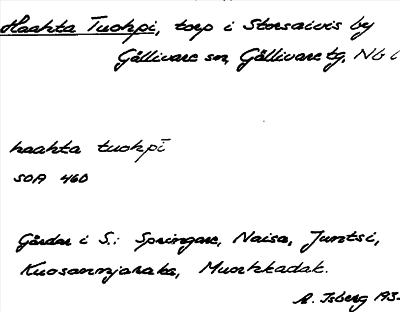 Haahta Tuohpi, torp i Storsaivis by
Gällivare sn, Gällivare tg, Nb l
haahta tuohpī
SOA 460
Gårdar i S.: Springare, Naisa, Juntsi,
Kuosannjaraka, Muorhkadak.
Isberg 193